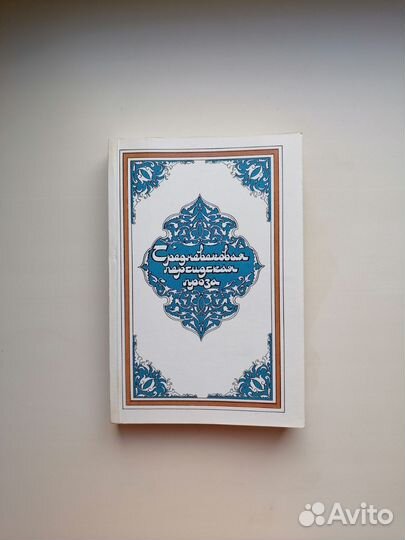 Средневековая
персидская
проза
Avito